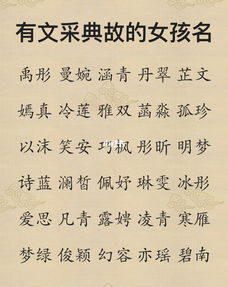 有文采典故的女孩名
禹彤 曼婉 涵青 丹翠 芷文
嫣真 冷莲 雅双 菡淼 孤珍
以沫 笑安 巧枫 彤昕 明梦
诗蓝 澜皙 佩妤 琳雯 冰彤
爱思 凡青 露娉 凌青 寒雁
梦绿 俊颖 幻容 亦瑶 碧南